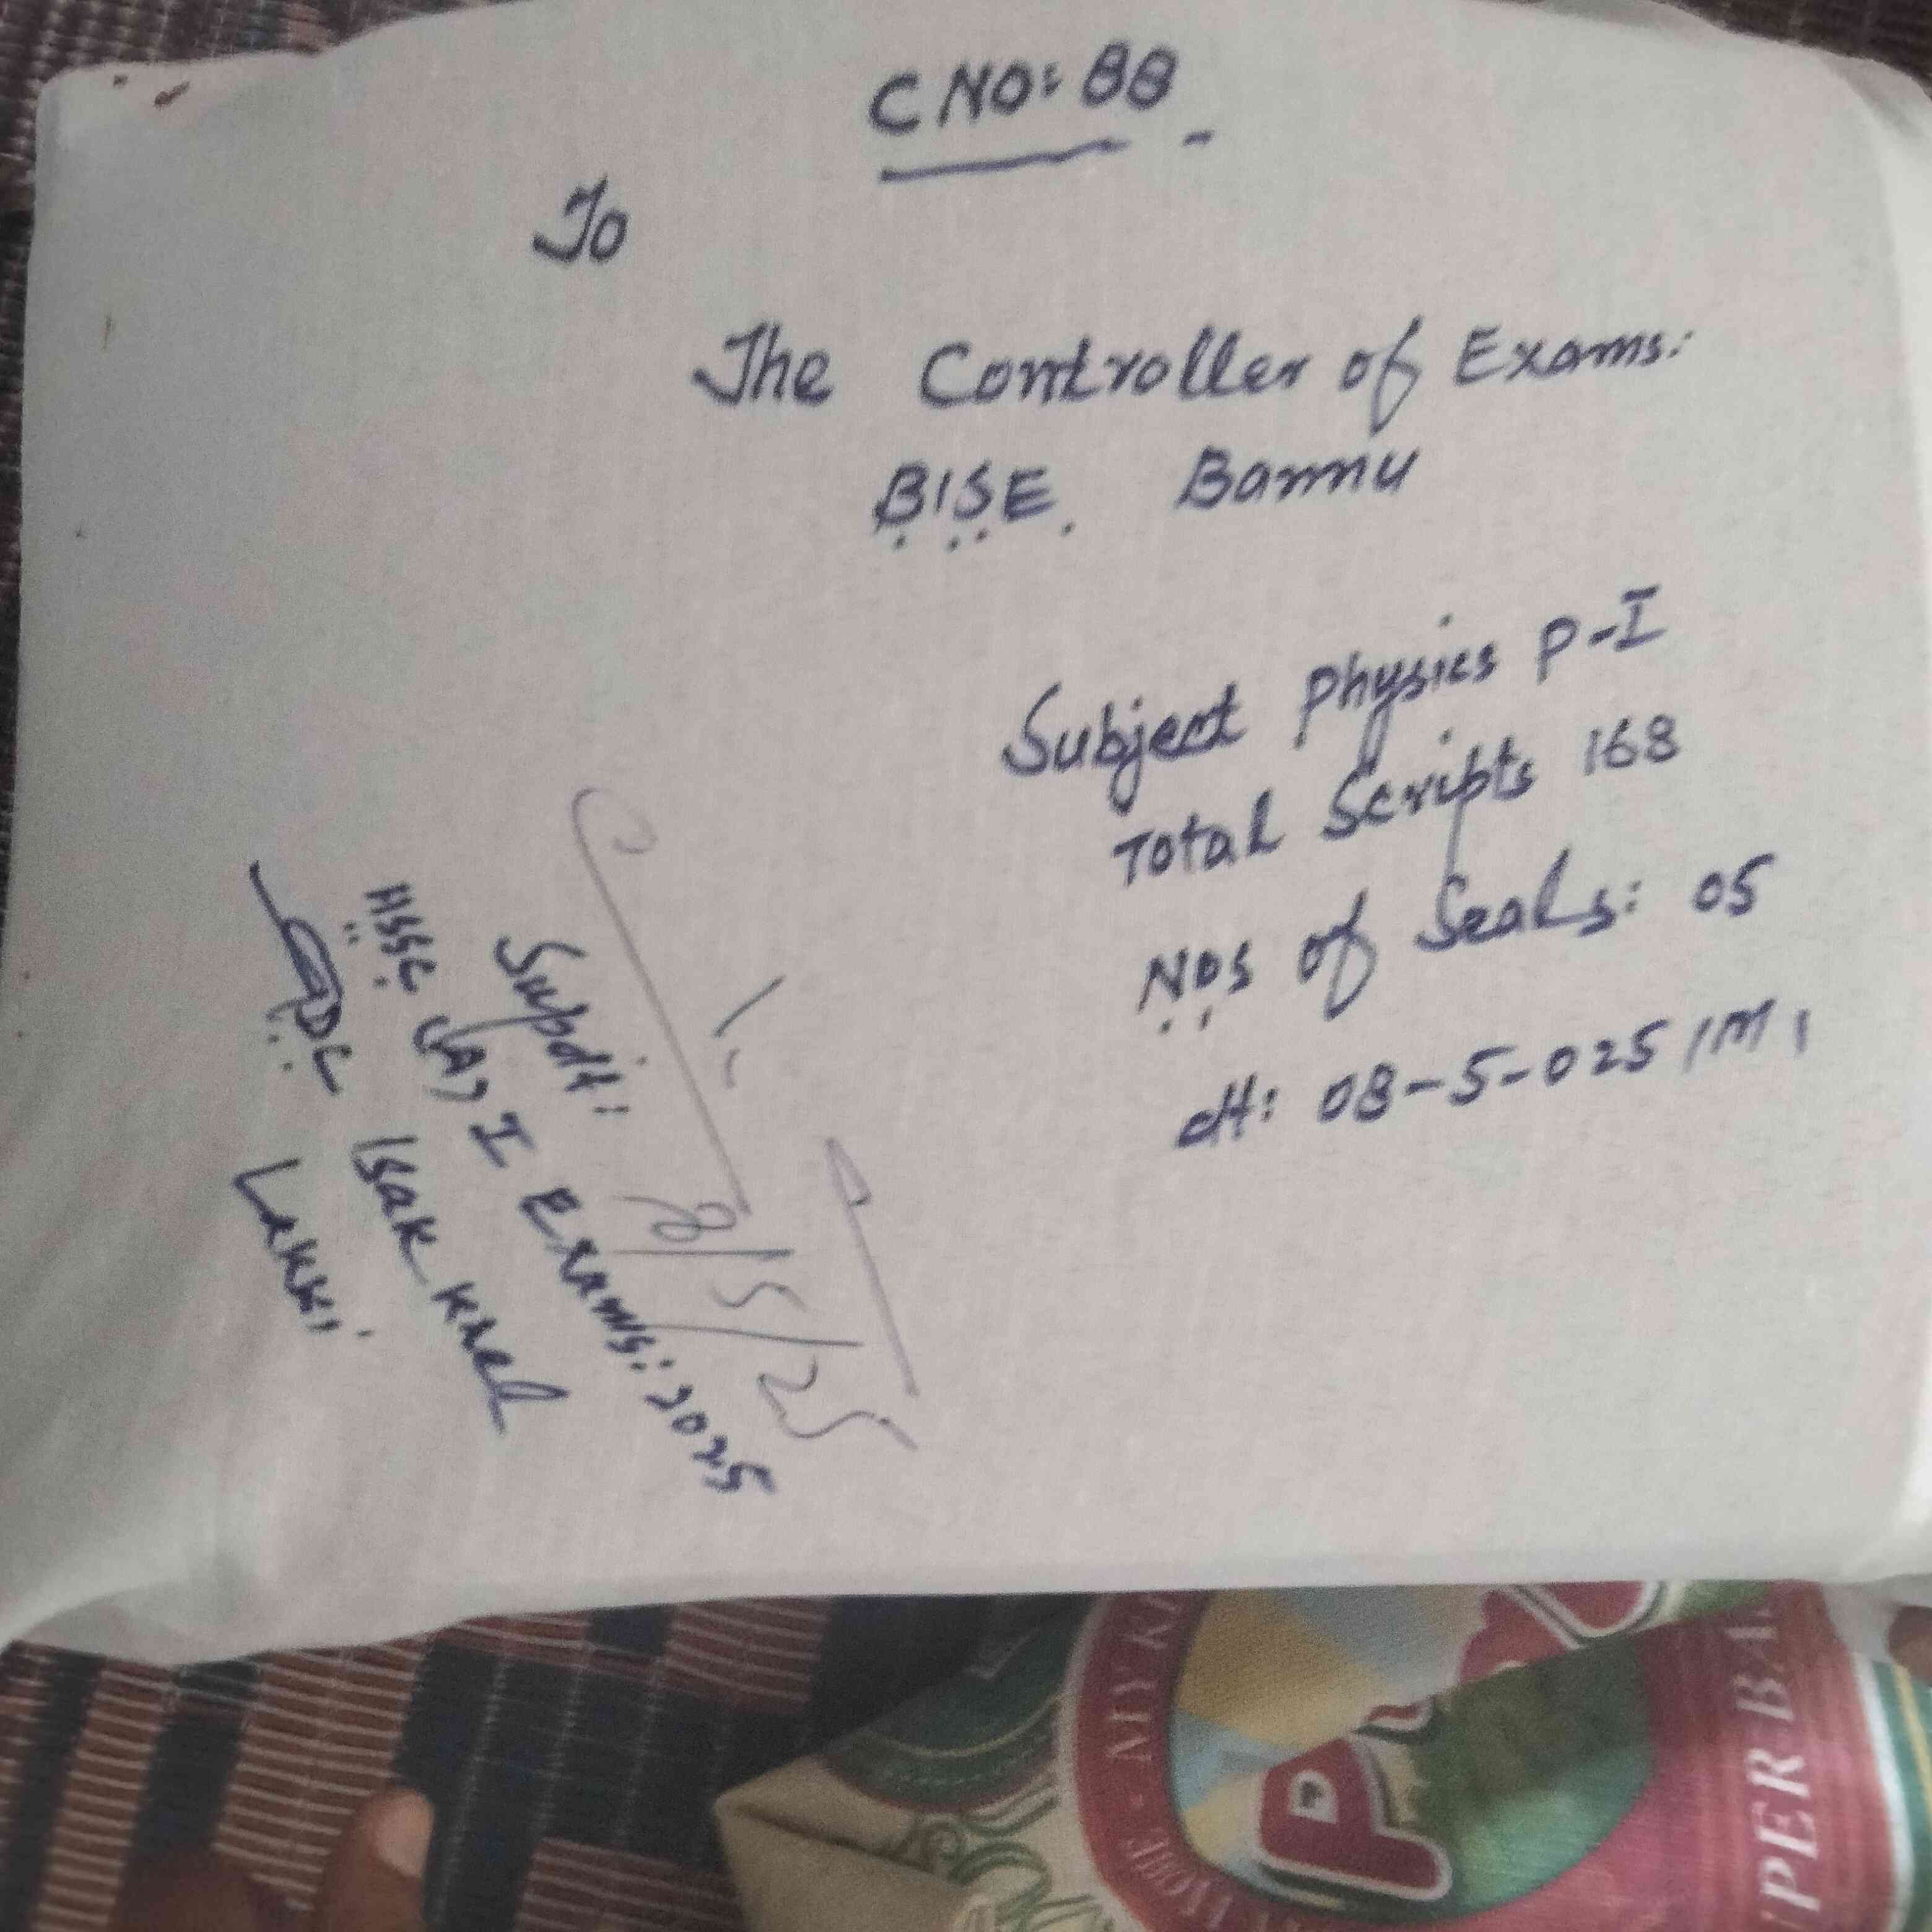 C NO: 88
To
The Controller of Exams:
BISE. Bannu
Subject Physics P-I
Total Scripts 168
NOS of Seals: 05
dt: 08-5-025 /M,
8/5/25
Supdt:
HSSC (A) I Exams: 2025
GDC Isak Khel
Lakki.
PER BA